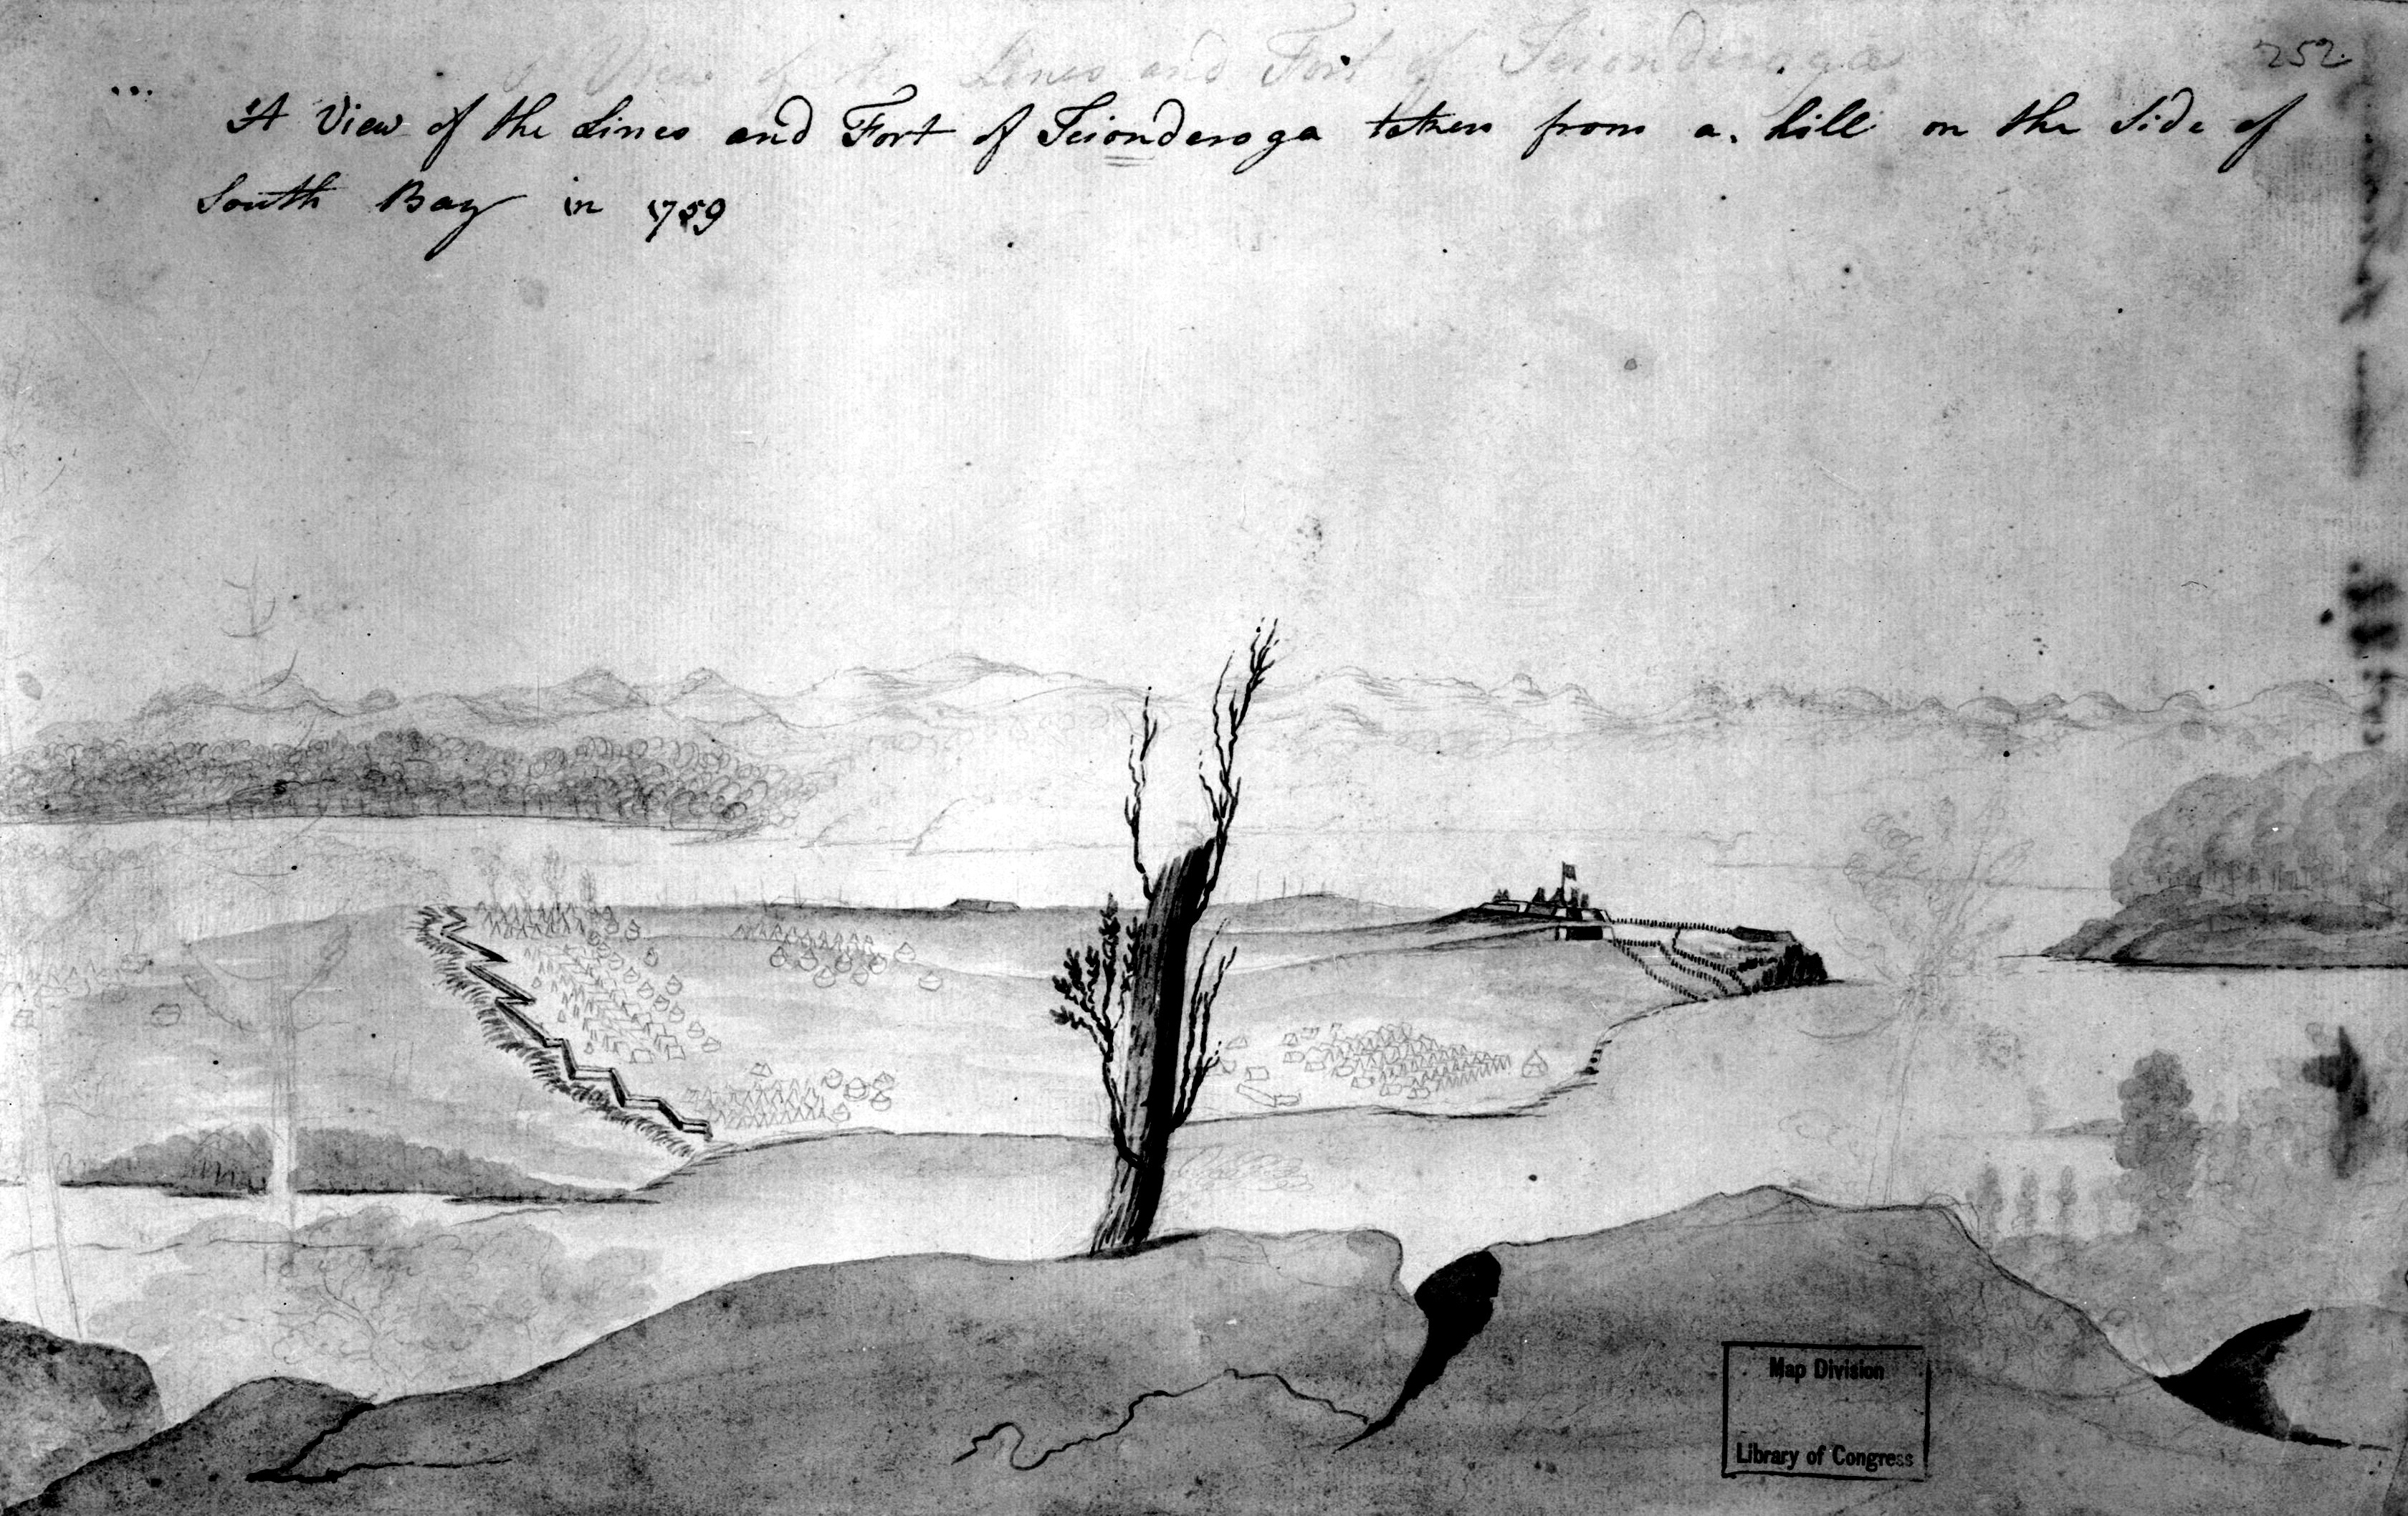 A View of the Lines and Fort of Teionderoga
252.
A View of the Lines and Fort of Teionderoga taken from a hill on the Side of
South Bay in 1759
Map Division
Library of Congress